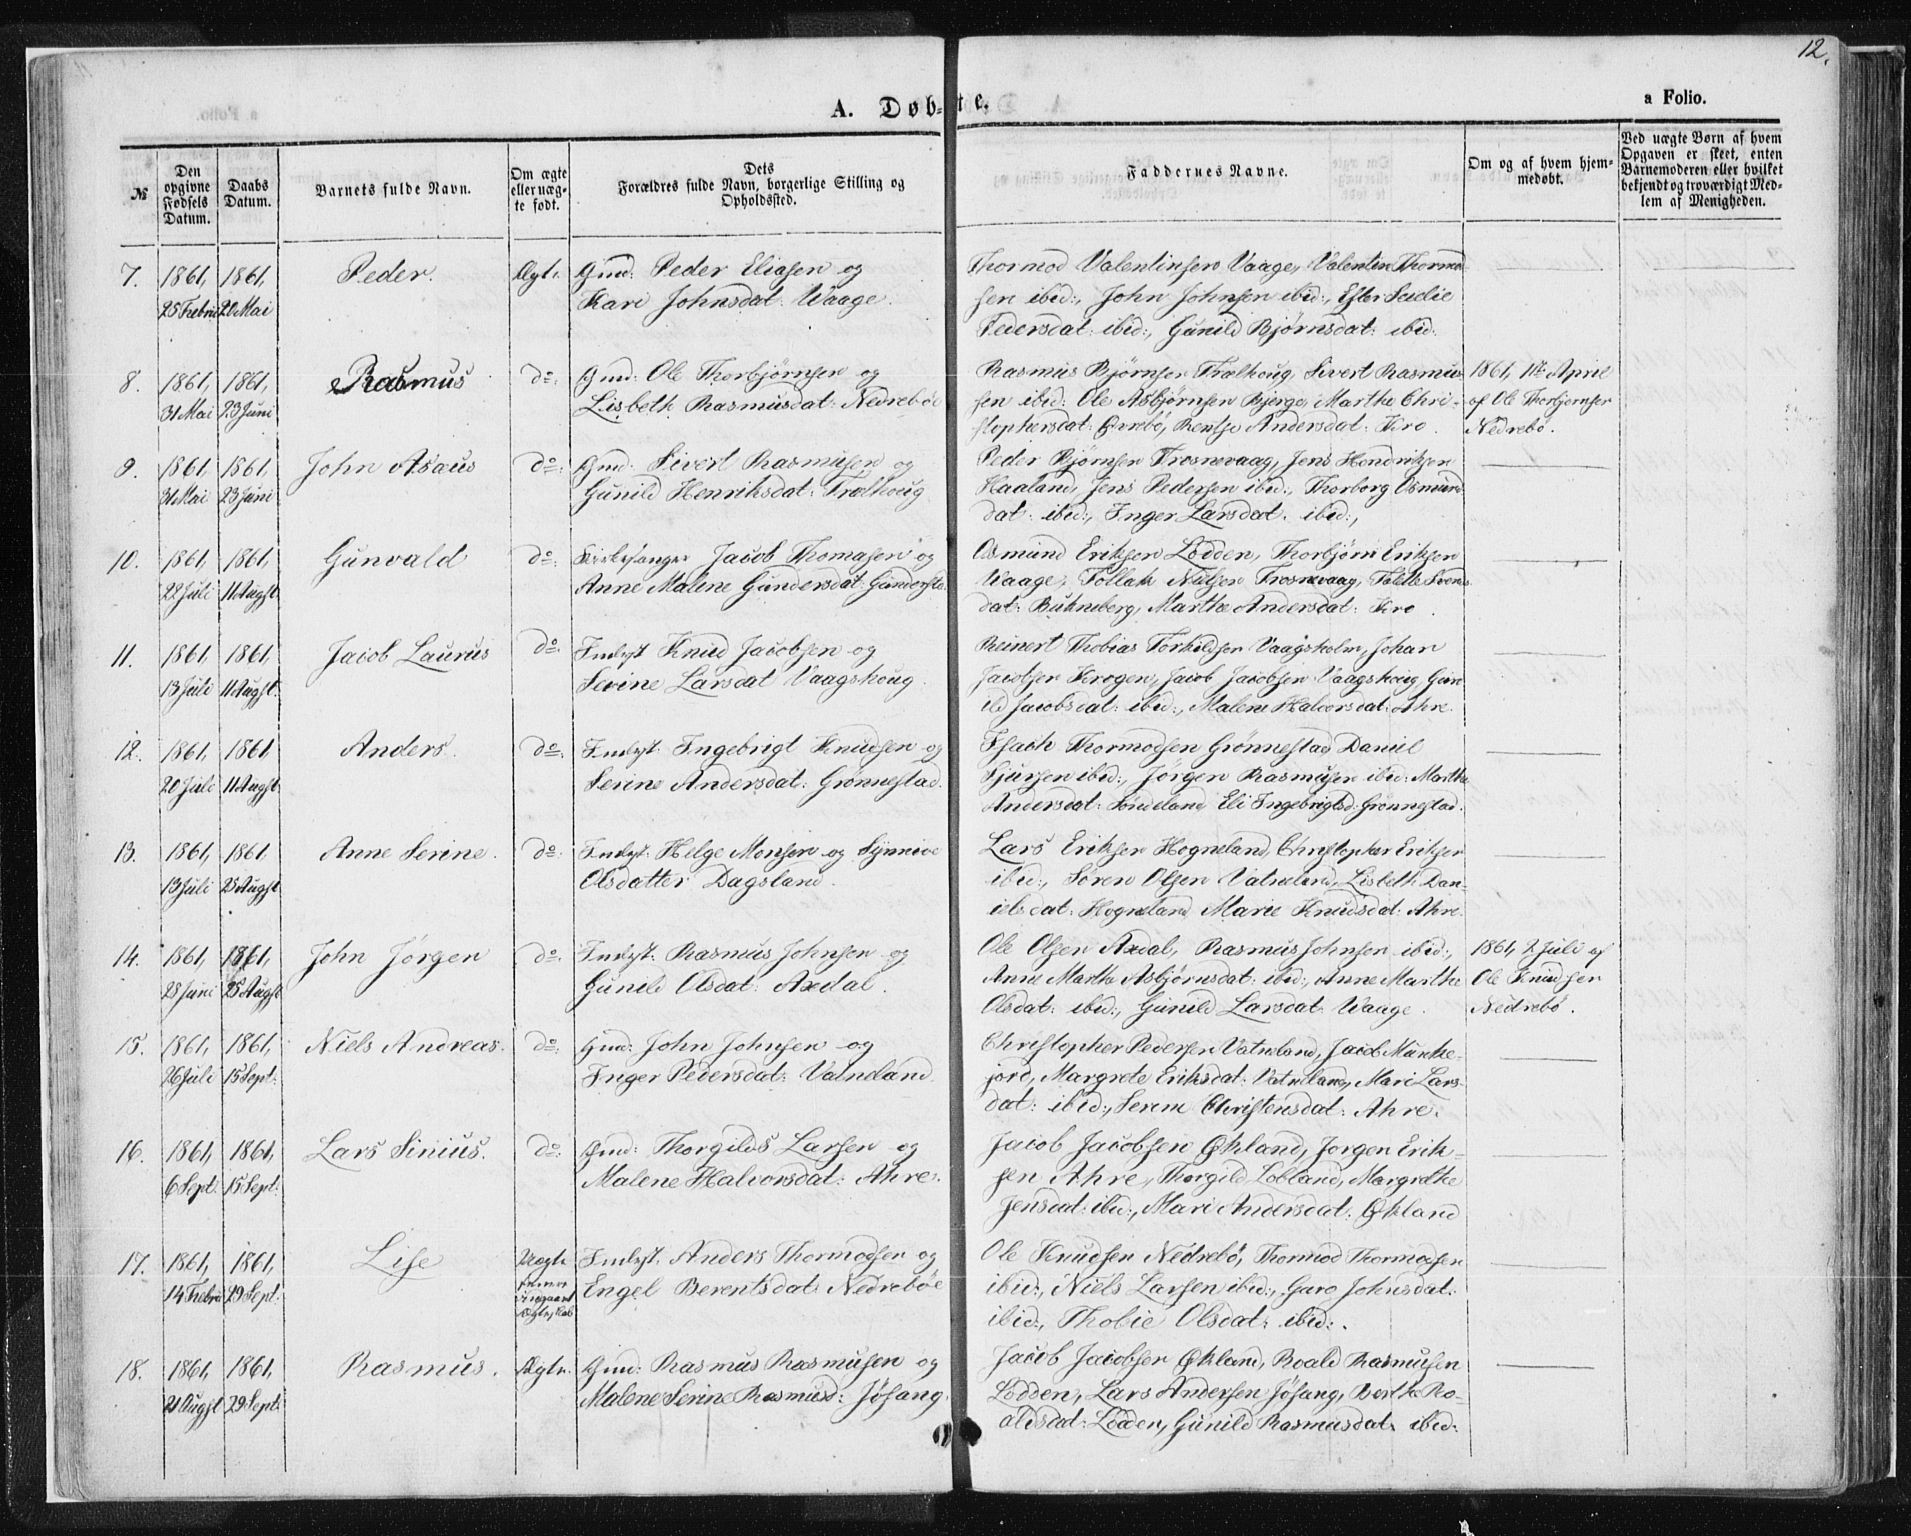 12.
A. Døbte.
a Folio.
№
Den opgivne Fødsels Datum.
Daabs Datum.
Barnets fulde Navn.
Om ægte eller uægte født.
Dets Forældres fulde Navn, borgerlige Stilling og Opholdssted.
Faddernes Navne.
Om og af hvem hjemmedøbt.
Ved uægte Børn af hvem Opgaven er skeet, enten Barnemoderen eller hvilket bekjendt og troværdigt Medlem af Menigheden.
7. 1861, 1861, Peder. Ægte. Gmd: Peder Eliasen og Thormod Valentinsen Vaage, Valentin Thormod
25 Febru 20 Mai Kari Johnsdat: Waage. sen ibid:, John Johnsen ibid:, Ester Sedie
Pedersdat: ibid:, Gunild Bjørnsdat: ibid.
8. 1861, 1861, Rasmus do: Gmd: Ole Thorbjørnsen og Rasmus Bjørnsen Trælhoug, Sivert Rasmus 1861, 1ste April
31 Mai 23 Juni Lisbeth Rasmusdat: Nedrebøe sen ibid: Ole Asbjørnsen Bjerge, Marthe Chri- af Ole Thorbjørnsen
stophersdat: Øvrebø, Rentse Andersdat: Kro. Nedrebø.
9. 1861, 1861, John Asaus do: Gmd. Sivert Rasmusen og Peder Bjørnsen Trosnevaag, Jens Hendriksen
31 Mai 23 Juni Gunild Henriksdat: Trælhoug Haaland, Jens Pedersen ibid:, Thorborg Osmund
dat: ibid:, Inger Larsdat. ibid:,
10. 1861, 1861, Gunvald do: Kirkesanger Jacob Thomasen og Osmund Eriksen Lodden, Thorbjørn Eriksen
22 Juli 11 Augst Anne Malene Gundersdat: Gundersta Vaage, Tollak Nilsen Trosnevaag, Talette Svens
dat: Bukneberg, Marthe Andersdat: Kro.
11. 1861, 1861, Jacob Laurus do: Indlyst Knud Jacobsen og Reinert Thobias Torkildsen Vaagsholm, Johan
13 Juli 11 Augst. Serine Larsdat Vaagshoug. Jacobsen Krogen, Jacob Jacobsen Vaagshoug, Gun
ild Jacobsdat: ibid:, Malene Halvorsdat: Ahre.
12. 1861, 1861 Anders. do: Indlyst: Ingebrigt Knudsen og Isach Thormodsen Grønnestad Daniel
20 Juli 11 Augst Serine Andersdat: Grønnestad. Sjursen ibid:, Jørgen Rasmusen ibid: Marthe
Andersdat: Søndeland Eli Ingebrigtsd: Grønnestad.
13. 1861, 1861 Anne Serine. do: Indlyst: Helge Monsen og Synneve Lars Eriksen Hogneland, Christopher Eriksen
13 Juli 25 Augst Olsdatter Dagsland. ibid:, Søren Olsen Vatneland, Lisbeth Dan-
ielsdat: Hogneland Marie Knudsdat: Ahre.
14. 1861, 1861, John Jørgen do: Indlyst: Rasmus Johnsen og Ole Olsen Axdal, Rasmus Johnsen ibid:, 1861, 2 Juli af
28 Juni 25 Augst Gunild Olsdat: Axdal. Anne Marthe Asbjørnsdat: ibid:, Anne Marthe Ole Knudsen
Olsdat: ibid:, Gunild Larsdat: Waage. Nedrebø.
15. 1861, 1861, Niels Andreas. do: Gmd: John Johnsen og Christopher Pedersen Vatneland, Jacob Munke-
26 Juli 15 Sept: Inger Pedersdat: Vatneland. jord, Margrete Eriksdat: Vatneland, Mari Lars
dat: ibid:, Serine Christensdat: Ahre.
16. 1861, 1861, Lars Sinius. do: Gmd: Thorgilds Larsen og Jacob Jacobsen Økland, Jørgen Erik-
6 Sept. 15 Sept: Malene Halvorsdat: Ahre. sen Ahre, Thorgild Lobland, Margrethe
Jensdat: ibid:, Mari Andersdat: Økland
17. 1861, 1861, Lise Uægte Indlyst. Anders Thormodsen og Ole Knudsen Nedrebø, Thormod Thormodsen
14 Febru 29 Sept. Engel Berentsdat: Nedrebøe ibid:, Niels Larsen ibid:, Guro Johnsdat.
ibid:, Thobie Olsdat: ibid:.
18. 1861, 1861, Rasmus. Ægte. Gmd: Rasmus Rasmusen og Jacob Jacobsen Økland, Roald Rasmusen
21 Augst 29 Sept: Malene Serine Rasmusd: Jøsang. Lodden, Lars Andersen Jøsang, Berthe Ro-
aldsdat: Lodden, Gunild Rasmusdat. ibid: